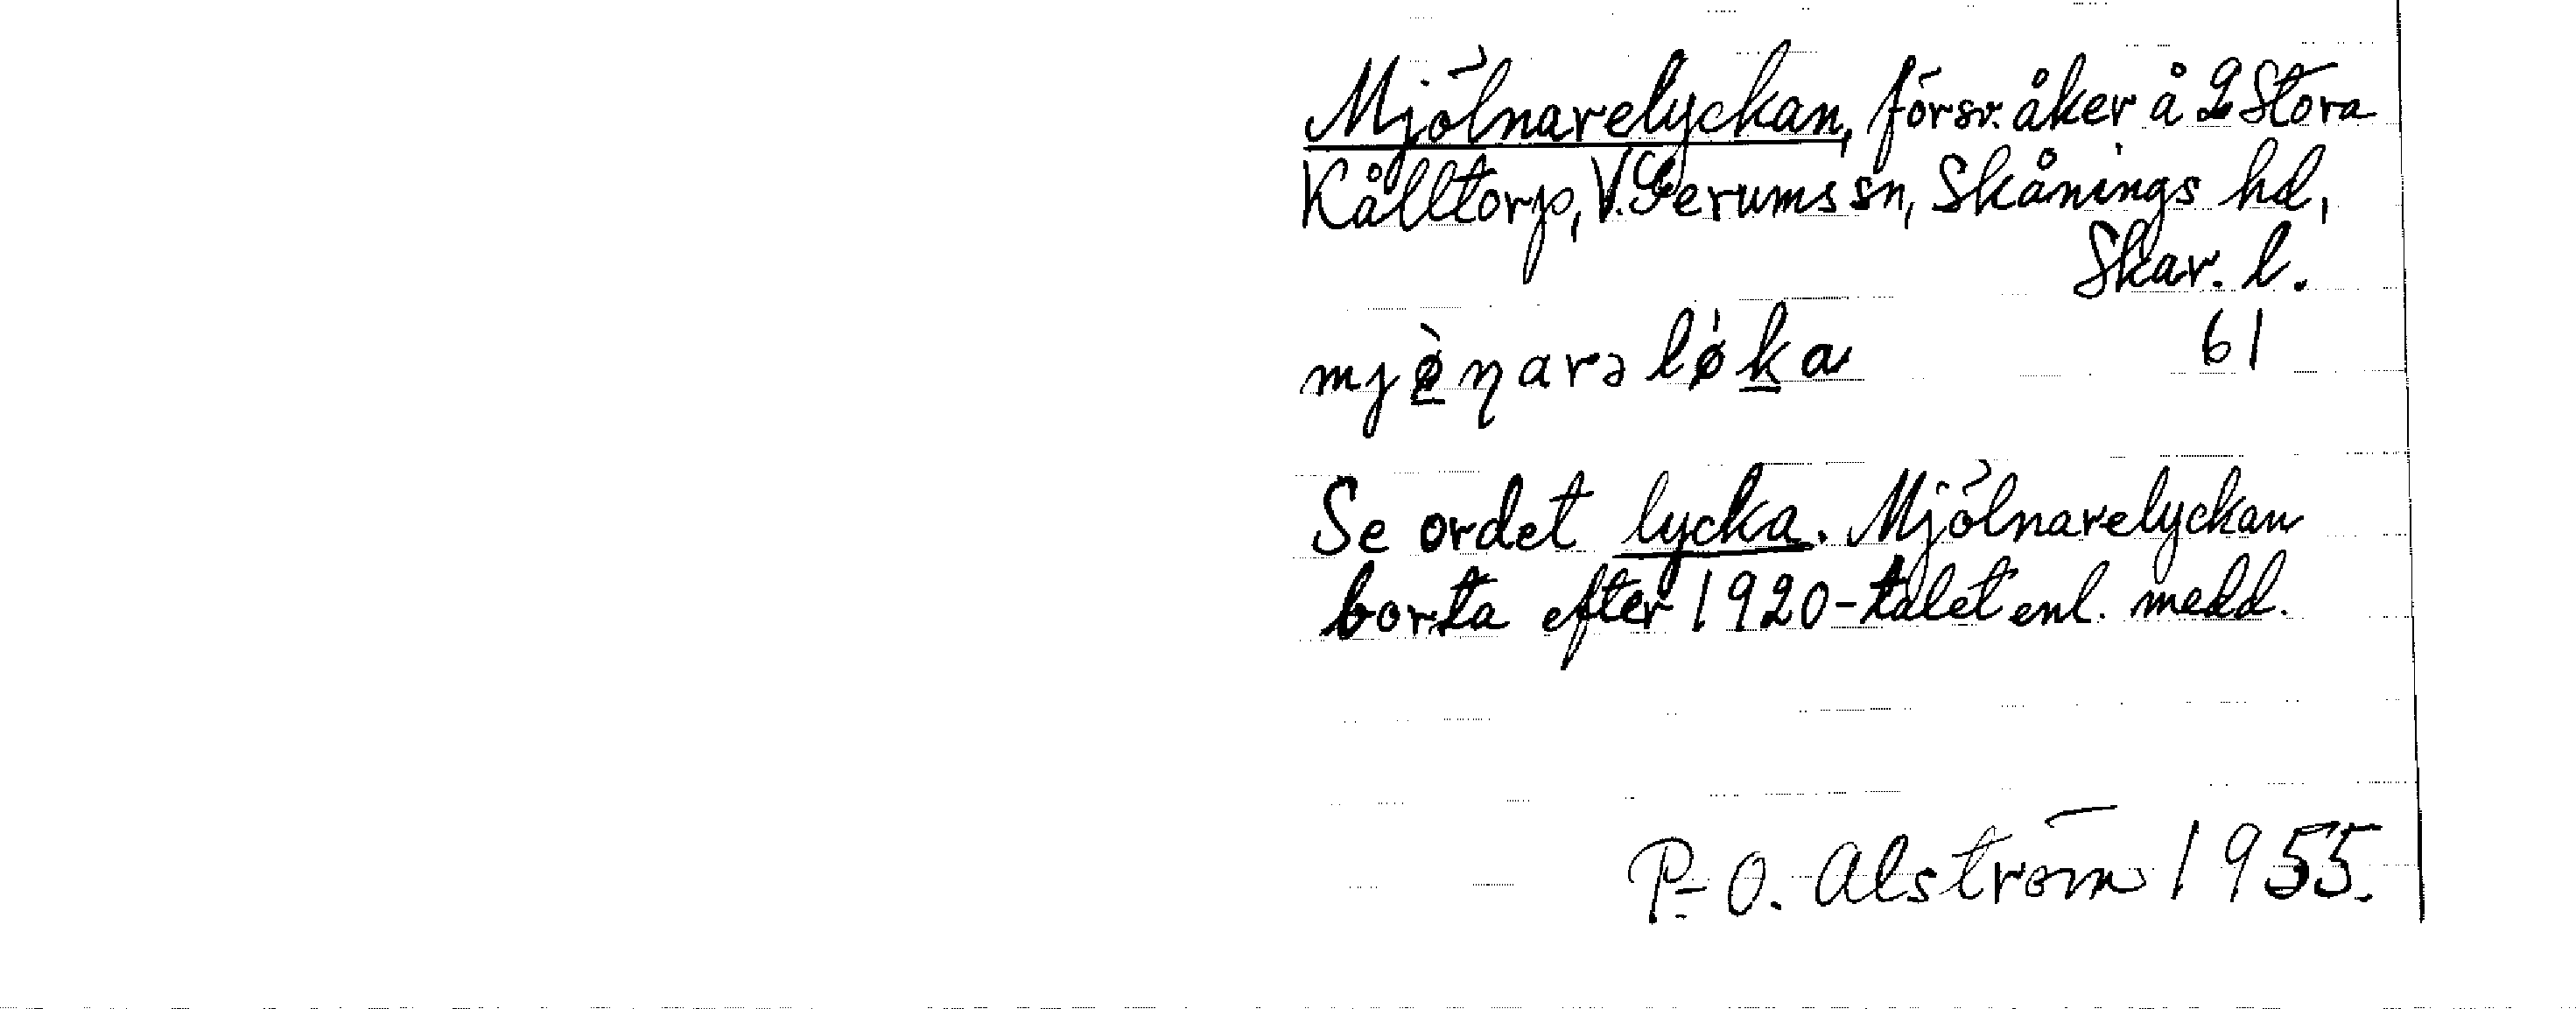 Mjölnarelyckan, försv. åker å 2 Stora
Kålltorp, V. Gerums sn, Skånings hd,
Skar. l.
mjø̀ɳarəlø̍ka 61
Se ordet lycka. Mjölnarelyckan
borta efter 1920-talet enl. medd.
P-O. Alström 1955.